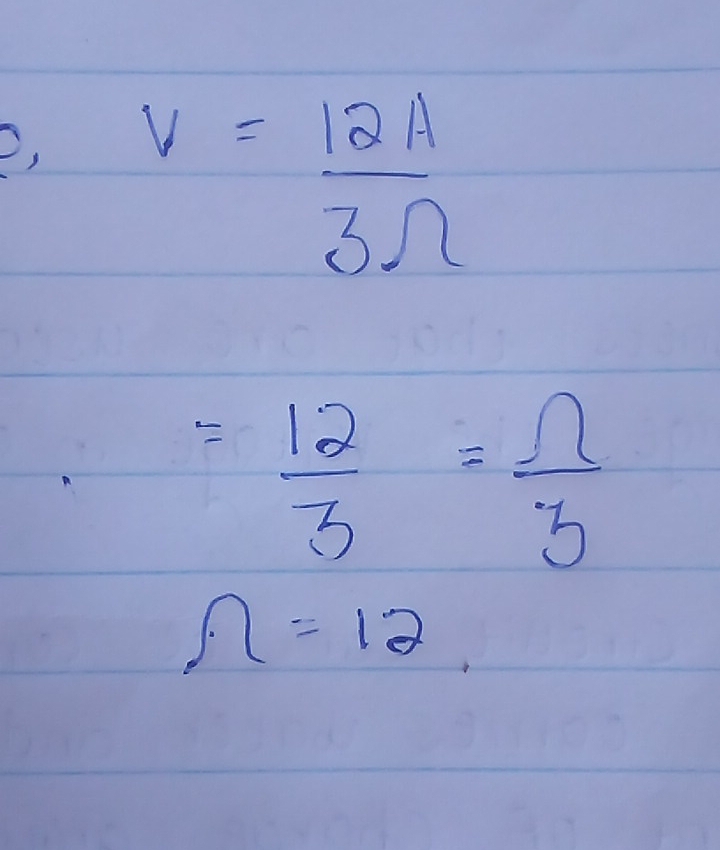 V = 12A
3Ω
= 12 = Ω
3 3
Ω = 12